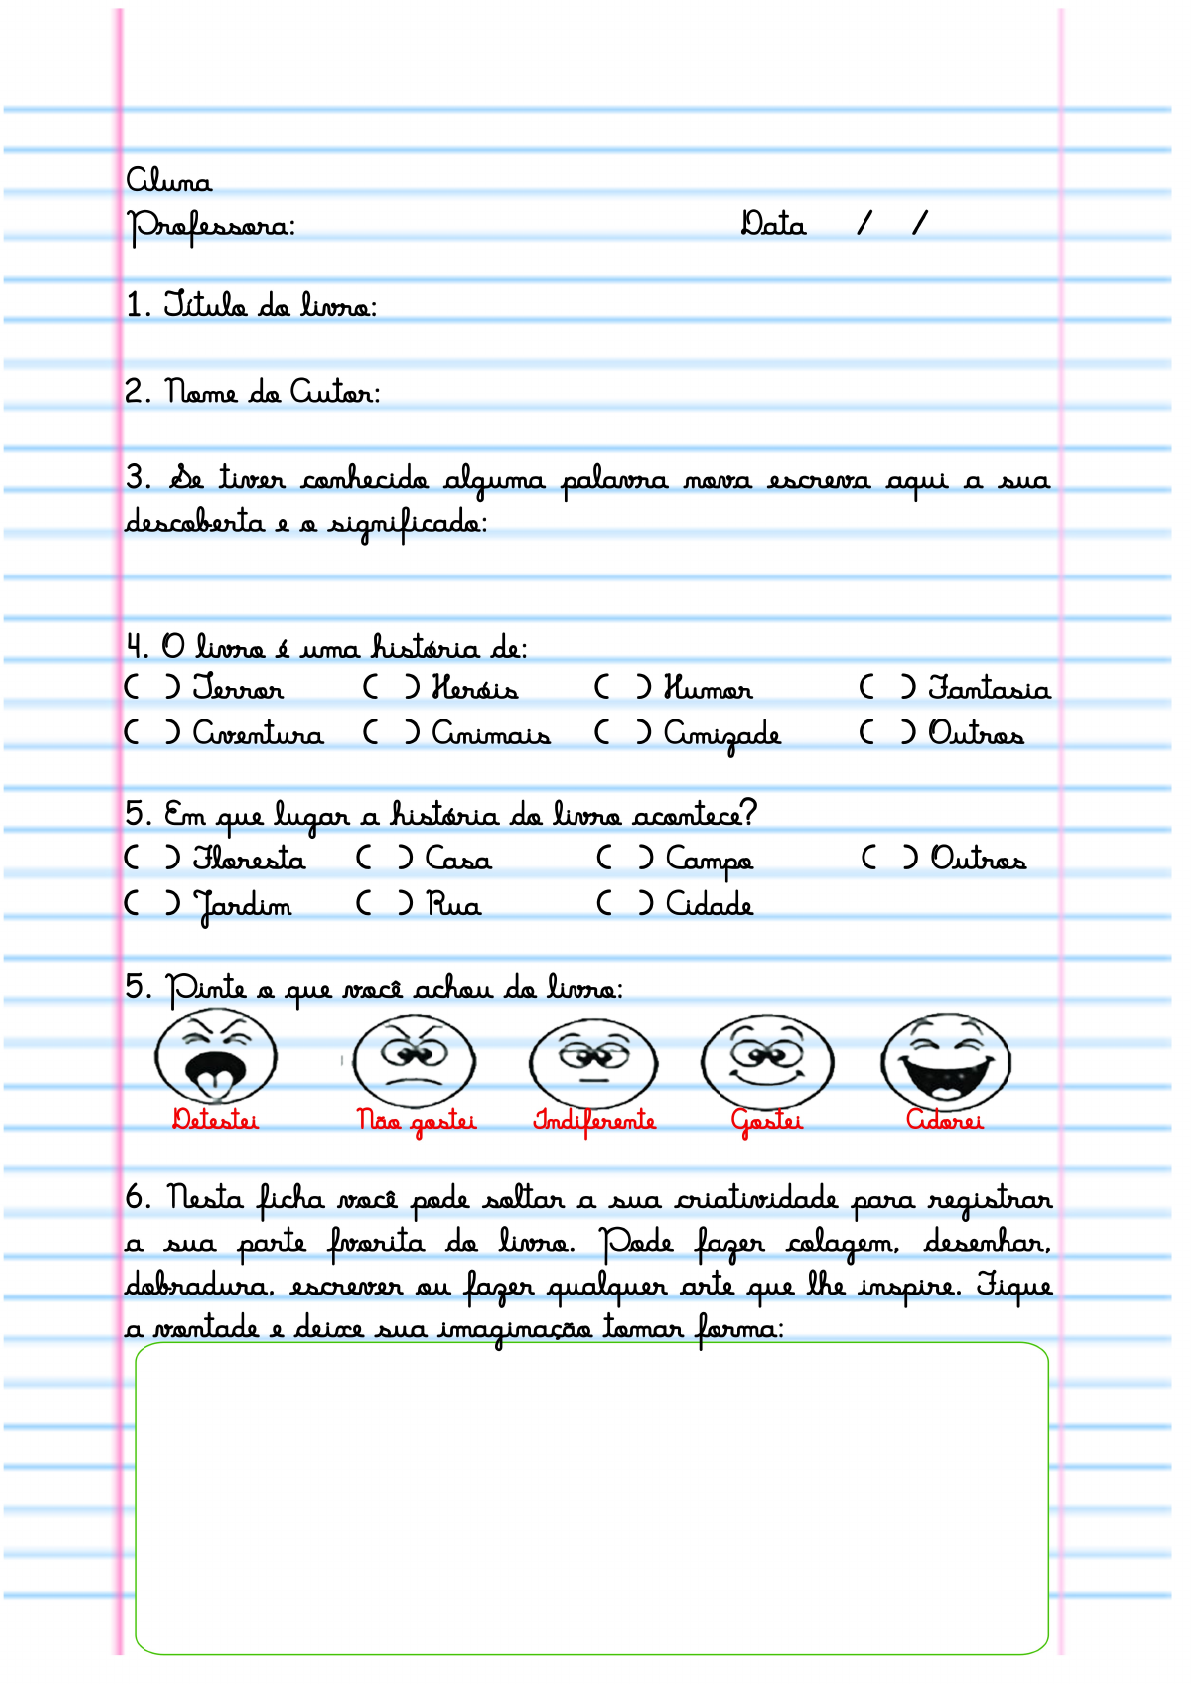 Aluna
Professora: Data / /
1. Título do livro:
2. Nome do Autor:
3. Se tiver conhecido alguma palavra nova escreva aqui a sua
descoberta e o significado:
4. O livro é uma história de:
( ) Terror ( ) Heróis ( ) Humor ( ) Fantasia
( ) Aventura ( ) Animais ( ) Amizade ( ) Outros
5. Em que lugar a história do livro acontece?
( ) Floresta ( ) Casa ( ) Campo ( ) Outros
( ) Jardim ( ) Rua ( ) Cidade
5. Pinte o que você achou do livro:
Detestei Não gostei Indiferente Gostei Adorei
6. Nesta ficha você pode soltar a sua criatividade para registrar
a sua parte fvorita do livro. Pode fazer colagem, desenhar,
dobradura, escrever ou fazer qualquer arte que lhe inspire. Fique
a vontade e deixe sua imaginação tomar forma: